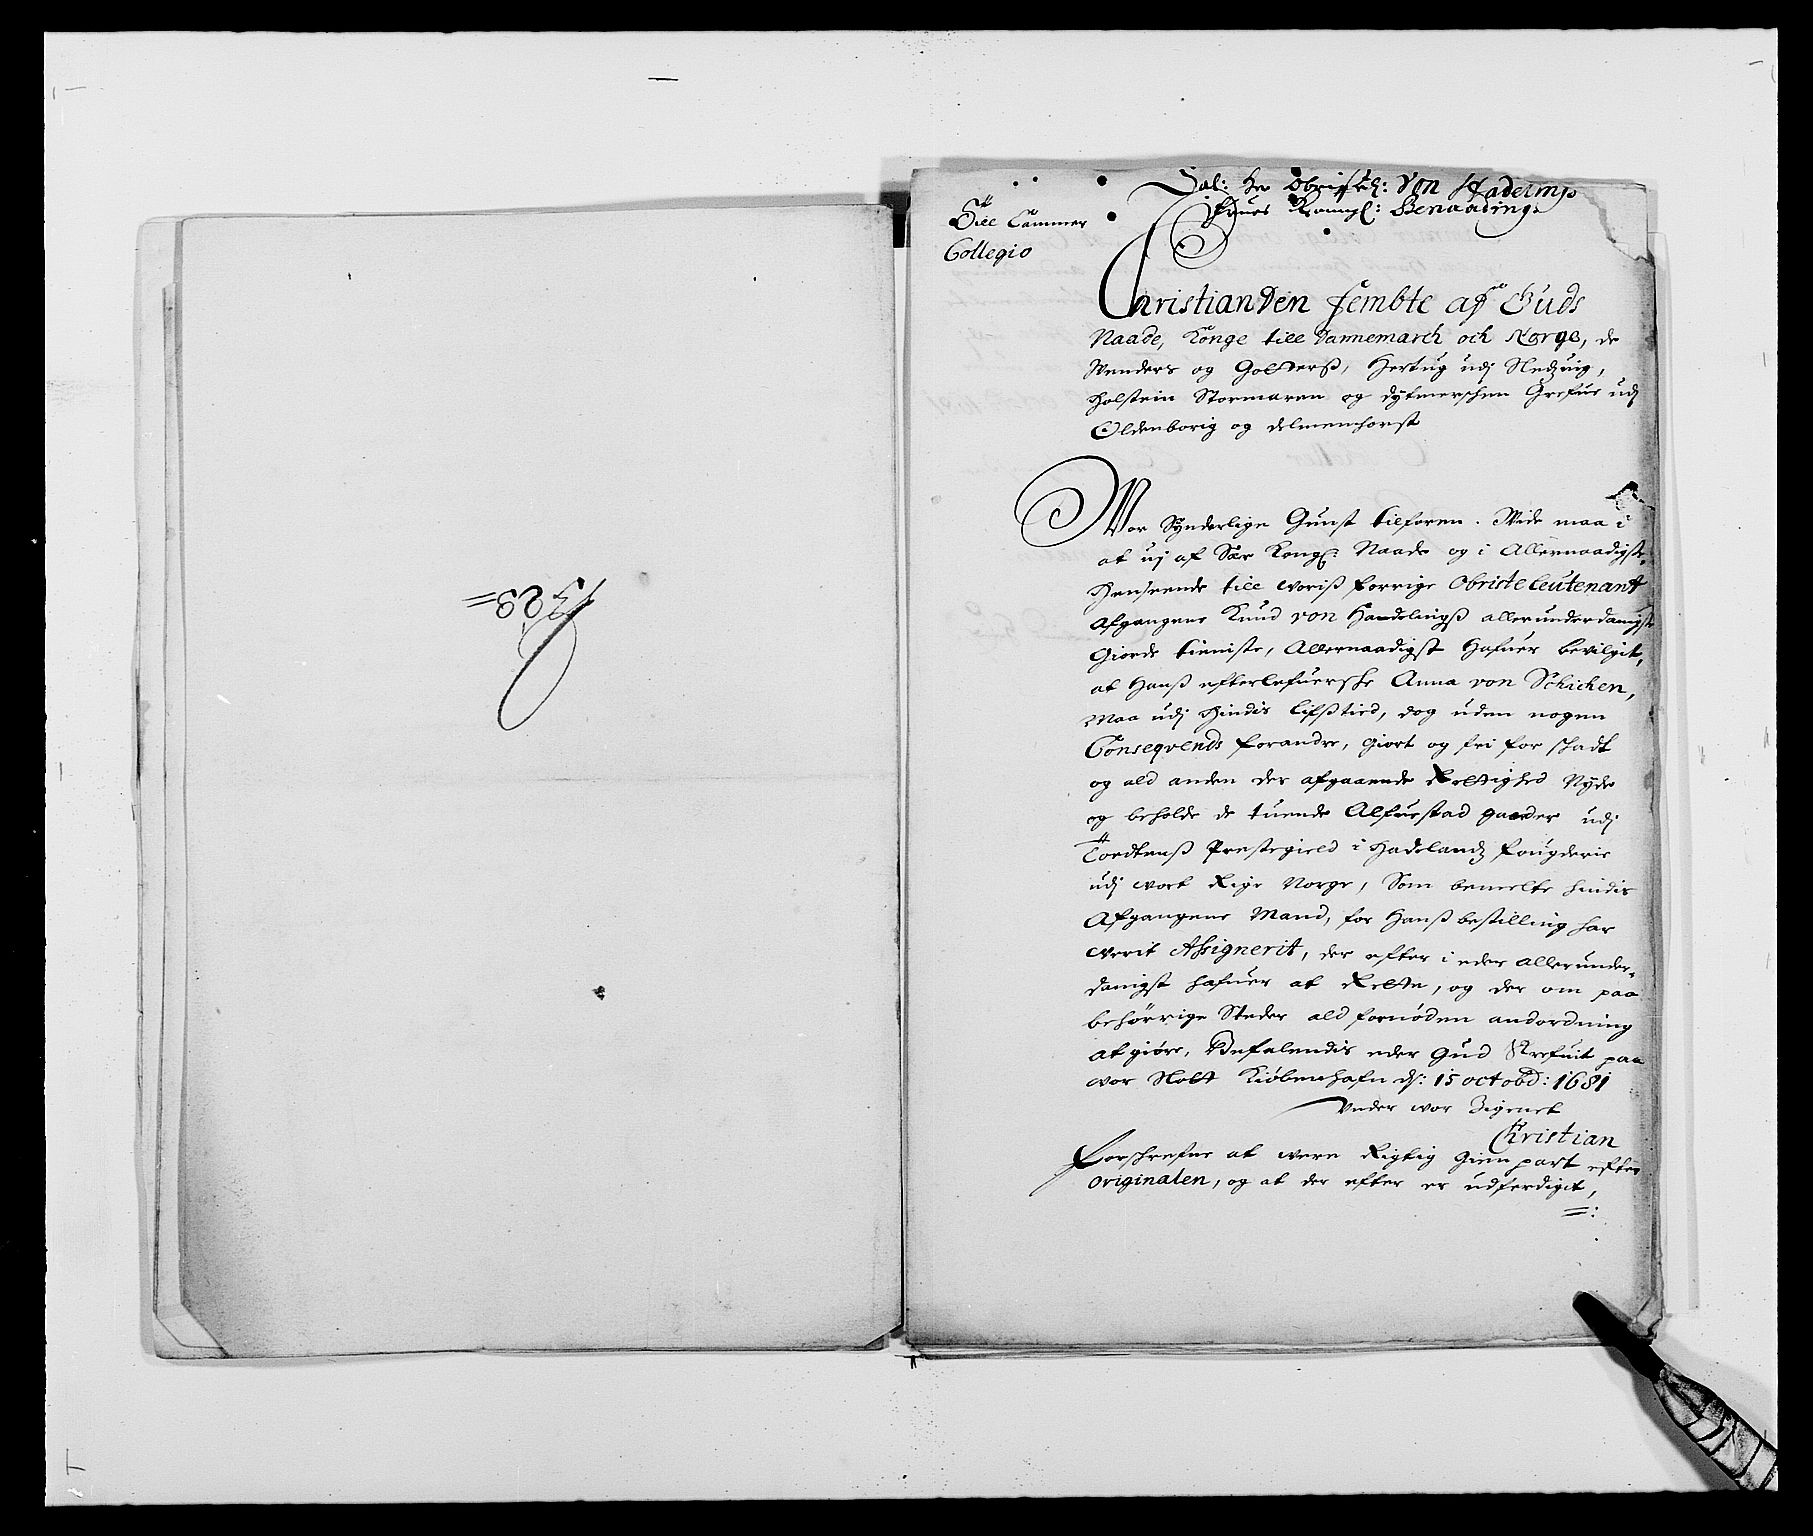 23=
Sal: Her Obriste: Von Hadelings
Frues Kongl: Benaading:
Till Cammer
Collegio
Christian Den fembte af Guds
Naade, Konge till Dannemarch och Norge, de
Wenders og Gotters, Hertug udj Sleßvig,
Holstein Stormaren og Dytmerschen Grefue udj
Oldenborig og Delmenhorst
Wor Synderlige Gunst tilforen. Wide maa i
at vj af Sær Kongl: Naade og i Allernaadigste
Henseende till woriß forrige Obriste leutenant
Afgangene Knud von Handelingß allerunderdanigste
Giorde tieniste, Allernaadigst Hafuer bevilgit,
at Hanß efterlefuerske Anna von Schichen,
Maa udj Hindis lifßtied, dog uden nogen
Conseqvends forandre, giort og fri for skatt
og ald anden der afgaaende Rettighed Nyde
og beholde de tuende Alfuestad gaarder udj
Tordtenß Prestegield i Hadelandz fougderie
udj wort Rige Norge, Som bemelte hindis
Afgangene Mand, for Hanß bestilling har
werit Assignerit, der efter i eder allerunder-
danigst hafuer at Rette, og der om paa
behörrige Steder ald fornöden andordning
at giöre, Befalendis eder Gud Skrefuit paa
wor Slott Kiöbenhafn d: 15 octobd: 1681
Under wor Zignet
Christian
Forschrefne at were Rigtig Gienpart efter
originalen, og at der efter er udferdiget,
=: